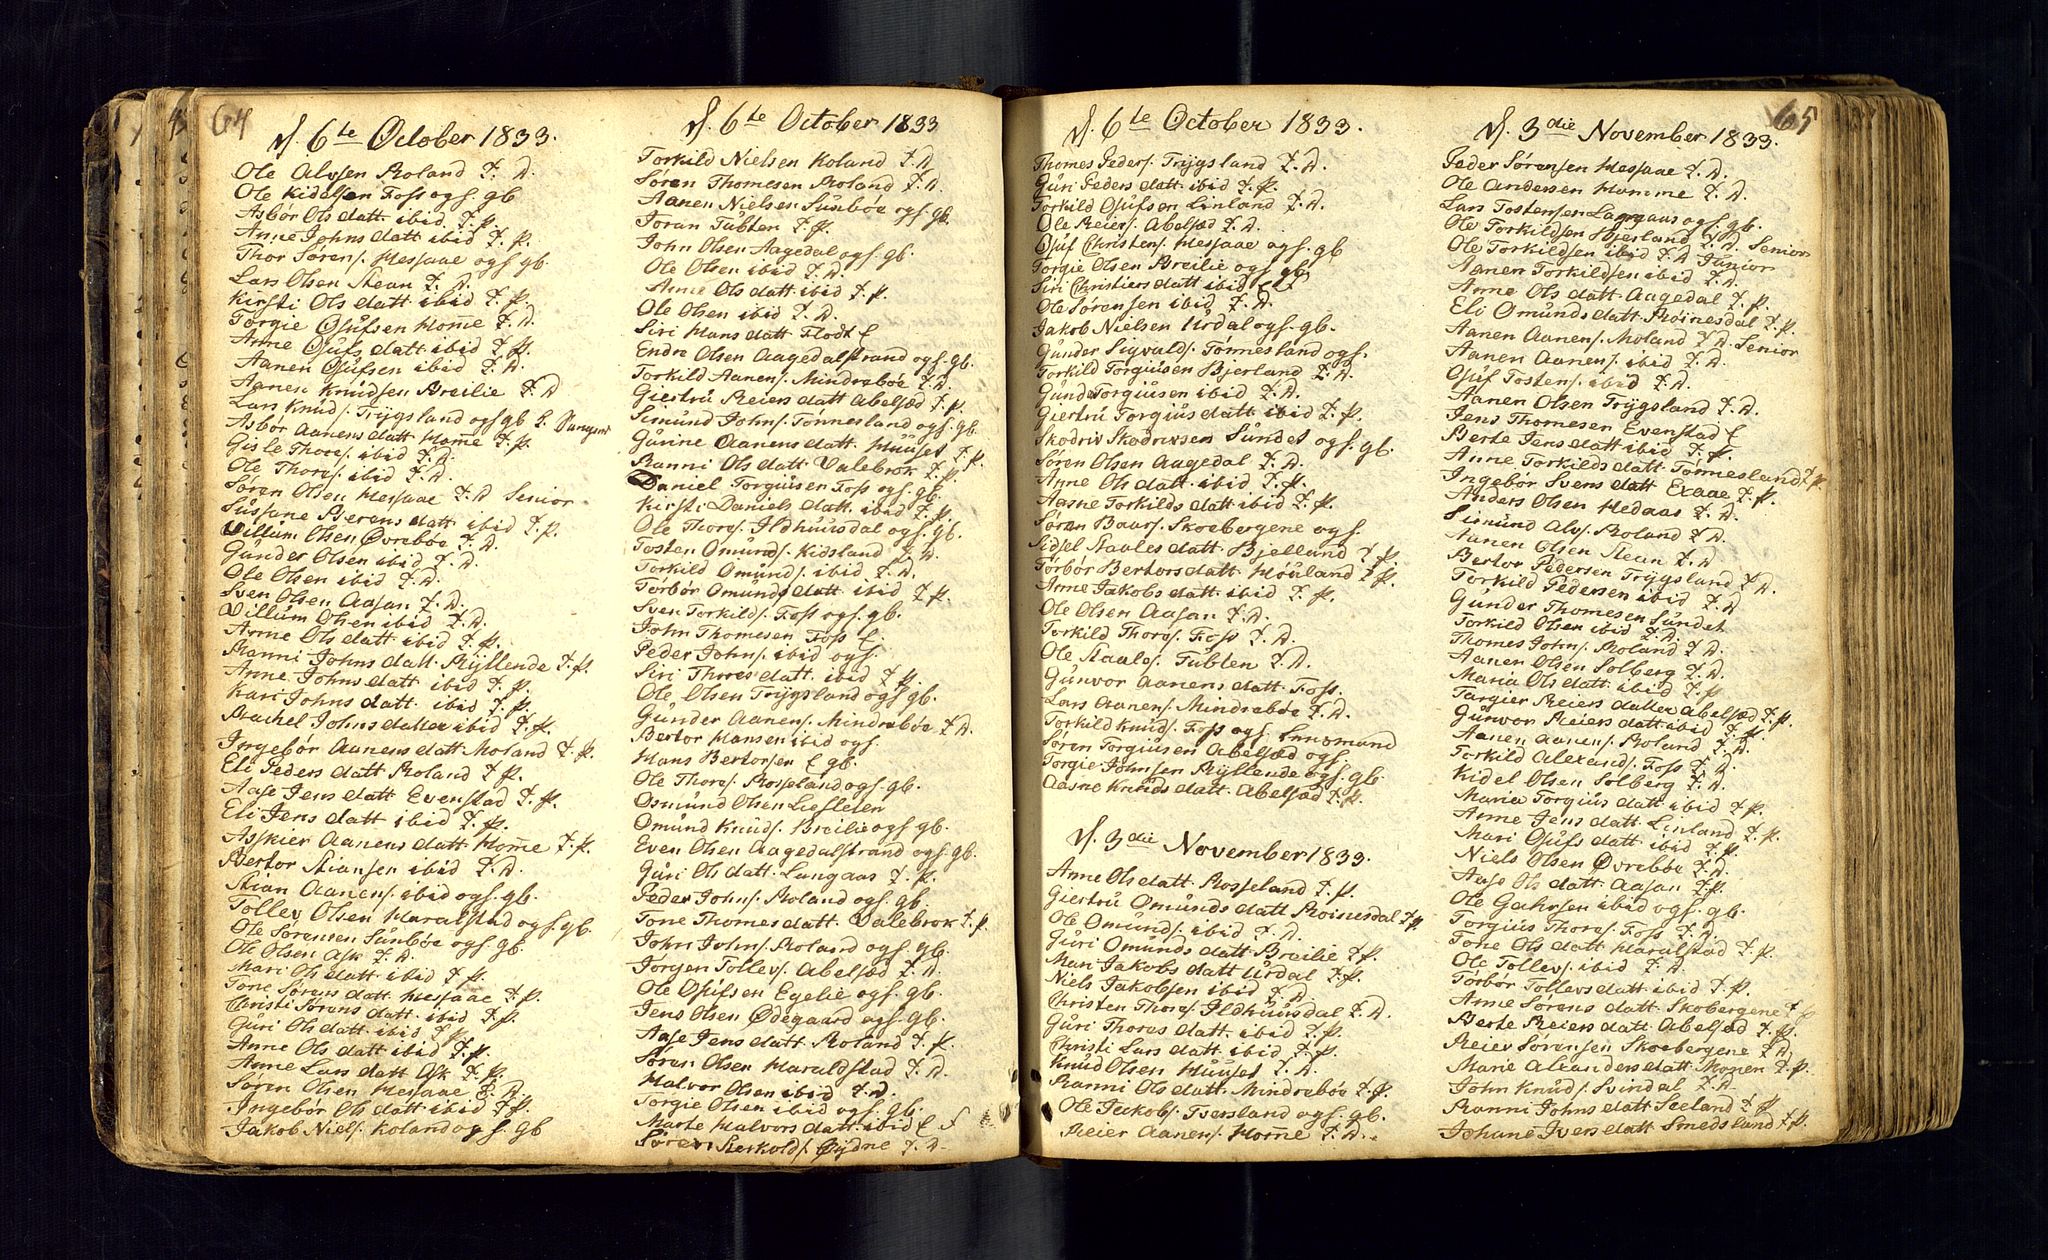 64
d. 6te October 1833.
Ole Alvsen Roland J. D.
Ole Kidelsen Foss og s. gb
Asbör Ols datt ibid J. p.
Anne Johns datt ibid J. p.
Thor Sörens. Messaae og s. gb.
Lars Olsen Stean J. D.
Kirsti Ols datt ibid J. p.
Torgie Osufsen Home J. D.
Anne Osufs datt ibid J. p.
Aanen Osufsen ibid J. D.
Aanen Knudsen Breilie J. D
Lars Knuds. Trygsland og s gb
Asbör Aanens datt Home J. p.
Gisle Thores. ibid J. D.
Ole Thores. ibid J. D.
Sören Olsen Messaae J. D Senior
Sussane Berens datt ibid J. p.
Villum Olsen Øvreböe J. D.
Gunder Olsen ibid J. D.
Ole Olsen ibid J. D.
Sven Olsen Aasan J. D.
Villum Olsen ibid J. D.
Anne Ols datt ibid J. p.
Ranni Johns datt Ryllende J. p.
Anne Johns datt ibid J. p.
Kari Johns datt ibid J. p.
Rachel Johns datter ibid J. p.
Ingebör Aanens datt Moland J. p.
Eli Peders datt Roland J. p.
Aase Jens datt Evenstad J. p.
Eli Jens datt ibid J. p.
Asskier Aanens datt Home J. p.
Bertor Stiansen ibid J. D.
Stian Aanens. ibid og s. gb.
Tollev Olsen Haralstad og s. gb.
Ole Sörensen Sunböe og s. gb.
Ole Olsen Ask J. D.
Mari Ols datt ibid J. p.
Tone Sörens datt Messaae J. p.
Christi Sörens datt ibid J. p.
Guri Ols datt ibid J. p.
Anne Ols datt ibid J. p.
Anne Lars datt Ask J. p.
Sören Olsen Messaae J. D.
Ingebör Ols datt ibid J. p.
Jakob Niels. Koland og s. gb
d. 6te October 1833
Torkild Nielsen Koland J. D.
Sören Thomesen Roland J. D.
Aanen Nielsen Sunböe og s. gb.
Joran Tubten J. p.
John Olsen Aagedal og s. gb.
Ole Olsen ibid J. D.
Anne Ols datt ibid J. p.
Ole Olsen ibid J. D.
Siri Hans datt Flodt E
Endre Olsen Aagedalstrand og s. gb.
Torkild Aanens. Mindreböe J. D.
Giestru Reiers datt Abelsæd J. p.
Simund Johns. Tönnesland og s. gb.
Gunne Aanens datt Huuset J. p.
Ranni Ols datt Valebrok J. p.
Daniel Torgiusen Foss og s. gb.
Kirsti Daniels datt ibid J. p.
Ole Thores. Ildhuusdal og s. gb.
Tosten Omunds. Kidsland J. D.
Torkild Omunds. ibid J. D.
Torbör Omunds datt ibid J. p.
Sven Torkilds. Foss og s. gb.
John Thomesen Foss E.
Peder Johns. ibid og s.
Siri Thores datt ibid J. p.
Ole Olsen Trygsland og s gb.
Gunder Aanens. Mindreböe J. D.
Bertor Hansen ibid og s.
Hans Bertorsen E gb.
Ole Thores. Rosseland og s. gb.
Osmund Olsen Liesleien
Omund Knuds. Breilie og s. gb.
Even Olsen Aagedalstrand og s. gb.
Guri Ols datt Langaas J. p.
Peder Johns. Roland og s. gb.
Tone Thomes datt Valebrok J. p.
John Johns. Roland og s. gb.
Jörgen Tollevs. Abelsæd J. D.
Ole Osufsen Egelie og s. gb.
Jens Olsen Ødegaard og s. gb.
Aase Jens datt Roland J. p.
Sören Olsen Haraldstad J. D.
Halvor Olsen ibid J. D.
Torgie Olsen ibid og s. gb.
Marte Halvors datt ibid E
Sören Sterkolds. Øydne J. D.
65
d. 6te October 1833.
Thomes Peders. Trygsland J. D.
Guri Peders datt ibid J. p.
Torkild Osufsen Linland J. D.
Ole Reiers. Abelsæd J. D.
Osuf Christens. Messaae og s. gb
Torgie Olsen Breilie og s. gb
Siri Christiers datt ibid
Ole Sörensen ibid J. D.
Jakob Nielsen Urdal og s. gb.
Gunder Sigvalds. Tönnesland og s.
Torkild Torgiusen Bjerland J. D.
Gunder Torgiusen ibid J. D.
Giertru Torgius datt ibid J. p.
Skodriv Skodrivsen Sundet og s. gb.
Sören Olsen Aagedal J. D.
Anne Ols datt ibid J. p.
Aasne Torkilds datt ibid J. p.
Sören Baars. Skoebergene og s.
Sidsel Staales datt Bjelland J. p.
Torbör Bertors datt Höuland J. p.
Anne Jakobs datt ibid J. p.
Ole Olsen Aasan J. D.
Torkild Thores. Foss J. D.
Ole Staales. Tubten J. D.
Gunvor Aanens datt Foss.
Lars Aanens. Mindreböe J. D.
Torkild Knuds. Foss og s.
Sören Torgiusen Abelsæd og s.
Torgie Johnsen Ryllende og s. gb.
Aasne Knuds datt Abelsæd J. p.
d. 3die November 1833.
Anne Ols datt Rosseland J. p.
Giestru Omunds datt Roinesdal J. p.
Ole Omunds. ibid J. D.
Guri Omunds datt Breilie J. p.
Mari Jakobs datt Urdal J. p.
Niels Jakobsen ibid J. D.
Christen Thores. Ildhuusdal J. D.
Guri Thores datt ibid J. p.
Christi Lars datt ibid J. p.
Knud Olsen Huuset J. D.
Ranni Ols datt Mindreböe J. p.
Ole Jakobs. Tversland og s. gb.
Reier Aanens. Home J. D.
d. 3die November 1833.
Peder Sörensen Messaae J. D.
Ole Andersen Homme J. D.
Lars Tostensen Langaas og s. gb.
Ole Torkildsen Bjerland J. D. Senior
Ole Torkildsen ibid J. D Junior
Aanen Torkildsen ibid J. D.
Anne Ols datt Aagedal J. p.
Eli Omunds datt Roinesdal J. p.
Aanen Aanens. Moland J. D. Senior
Aanen Aanens. ibid J. D.
Osuf Tostens. ibid J. D.
Aanen Olsen Trygsland J. D.
Jens Thomesen Evenstad E
Berte Jens datt ibid J. p.
Anne Torkilds datt Tönnesland J. p.
Ingebör Svens datt Exaae J. p.
Anders Olsen Hedaas J. D.
Simund Alvs. Roland J. D.
Aanen Olsen Stean J. D.
Bertor Pedersen Trygsland J. D.
Torkild Pedersen ibid J. D.
Gunder Thomesen Sundet
Torkild Olsen ibid J. D.
Thomes Johns. Roland J. D.
Aanen Olsen Solberg J. D.
Maria Ols datt ibid J. p.
Targier Reiers datter Abelsæd J. p.
Gunvor Reiers datt ibid J. p.
Aanen Aanens. Roland J. D.
Torkild Alexands. Foss J. D.
Kidel Olsen Solberg J. D.
Maria Torgius datt ibid J. p.
Anne Jens datt Linland J. p.
Mari Osufs datt ibid J. p.
Niels Olsen Øvreböe J. D.
Aase Ols datt Aasan J. p.
Ole Gahrsen ibid og s. gb.
Torgius Thores. Foss J. D.
Tone Ols datt Haralstad J. p.
Ole Tollevs. ibid J. D.
Torbör Tollevs datt ibid J. p.
Anne Sörens datt Skobergene J. p
Berte Reiers datt Abelsæd J. p.
Reier Sörensen Skoebergene J. D.
Marie Alexanders datt Monen J. p.
John Knuds. Svindal J. D.
Ranni Johns datt Seeland J. p
Johane Ivers datt Smedsland J. p.